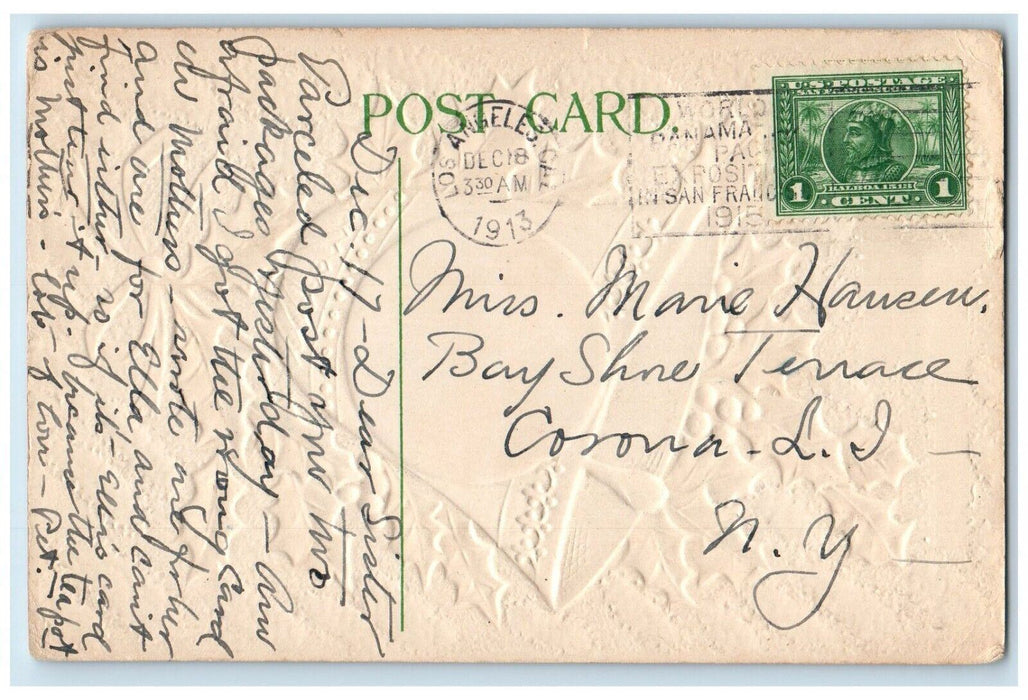 POST CARD.
LOS ANGELES, CAL.
DEC 18
3 30 AM
1913
WORLD'S
PANAMA
PACI
EXPOSIT
IN SAN FRANC
1915
U.S. POSTAGE
SAN FRANCISCO 1915
BALBOA 1513
1 CENT 1
Dec. 17 - Dear Sister
Parceled post you two
packages yesterday - Am
afraid I got the wrong card
in Mothers - wrote one for her
and one for Ella, and can't
find either - so if it's Ella's card
just tear it up. because the tea pot
is Mothers. Lots of love - Pet.
Miss. Marie Hansen.
Bay Shore Terrace
Corona. L. I
N. Y